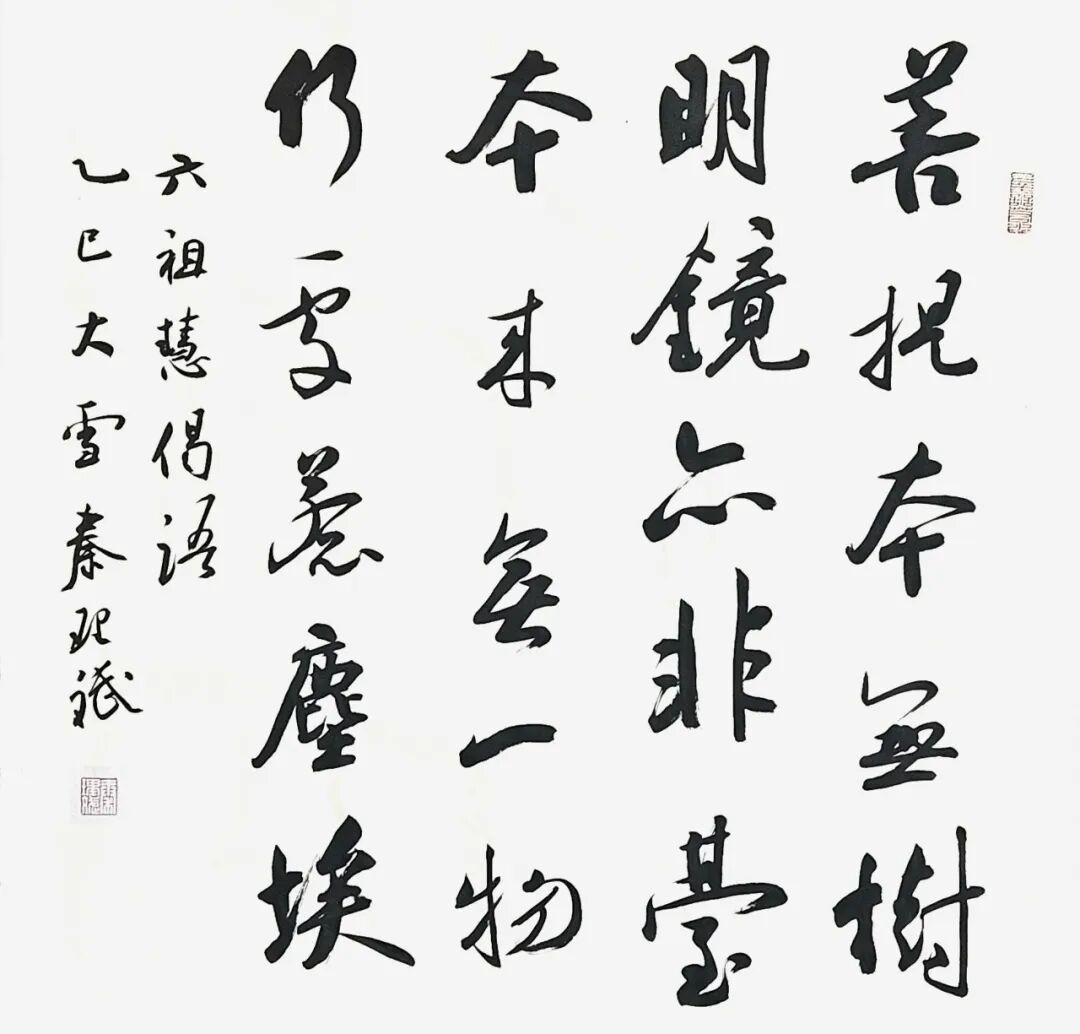 菩提本無樹
明鏡亦非臺
本来無一物
何處惹塵埃
六祖慧偈語
乙巳大雪秦